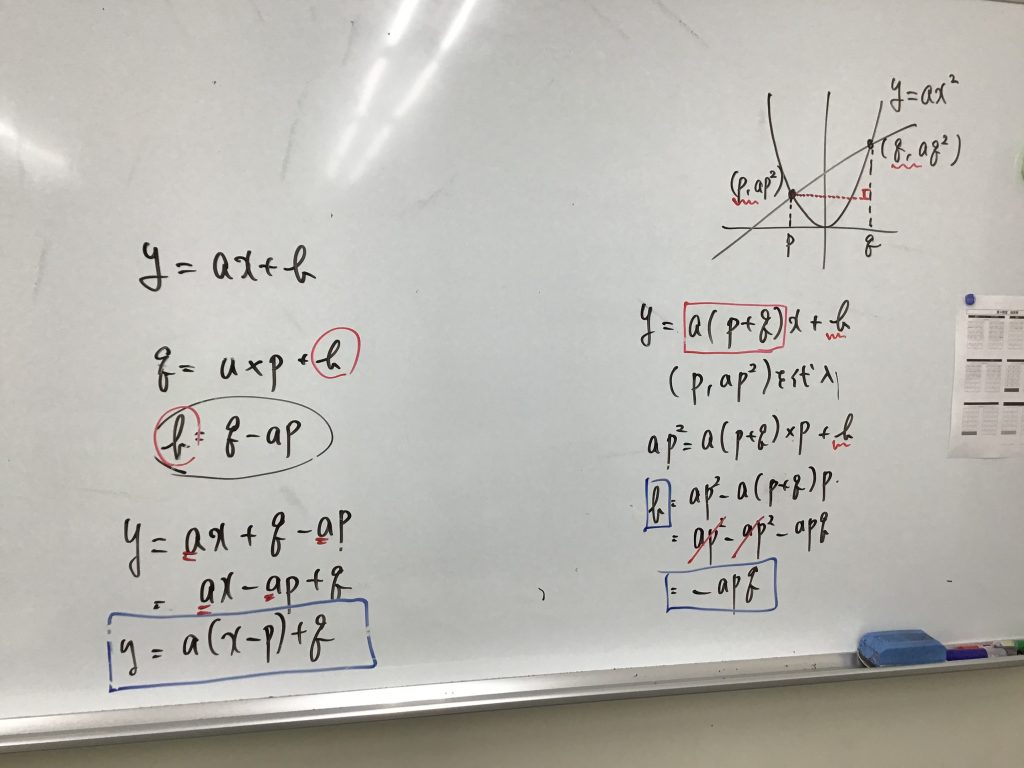 y = ax + b
q = a × p + b
b = q - ap
y = ax + q - ap
= ax - ap + q
y = a(x-p) + q
y = ax²
(q, aq²)
(p, ap²)
p q
y = a(p+q)x + b
(p, ap²)を代入
ap² = a(p+q)×p + b
b = ap² - a(p+q)p
= ap² - ap² - apq
= -apq